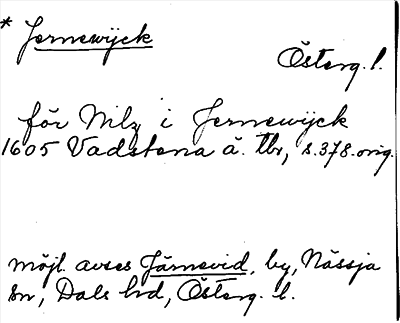 * Jernewijck
Österg. l.
för Nilz i Jernewijck
1605 Vadstena ä. tbr, s. 378. orig.
möjl. avses Järnevid, by, Nässja
sn, Dals hd, Österg. l.